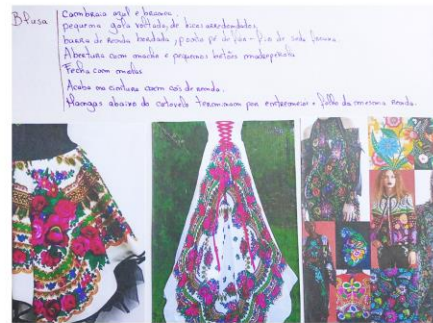 Blusa
Cambraia azul e branca,
pequena gola voltada, de bicos arredondados,
barra de renda bordada, fio de seda
Abertura com macho e pequenos botões madrepérola
Fecha com molas
Acaba na cintura com cós de renda.
Mangas abaixo do cotovelo Terminam por entremeio e folho da mesma renda.